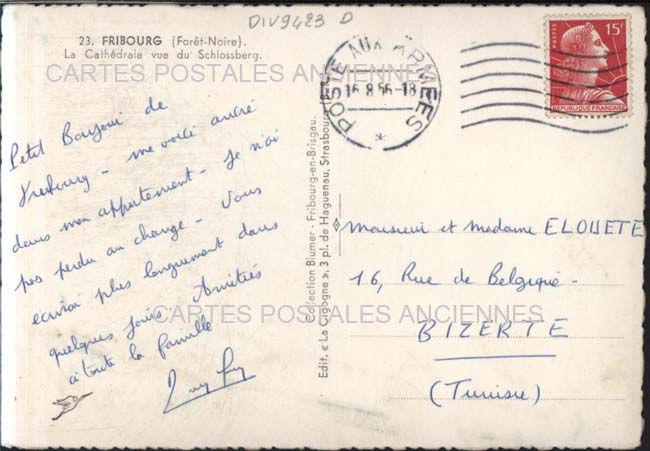 DIV9423 D
23. FRIBOURG (Forêt-Noire).
La Cathédrale vue du Schlossberg.
CARTES POSTALES ANCIENNES
POSTE AUX ARMEES
16.8.56-18
*
POSTES
15F
REPUBLIQUE FRANÇAISE
Petit Bonjour de
Freiburg - me voici ancré
dans mon appartement - Je n'ai
pas perdu au change - Vous
écrirai plus longuement dans
quelques jours Amitiés
à toute la famille
Collection Blumer - Fribourg-en-Brisgau.
Edit. « La Cigogne », 3 pl. de Haguenau, Strasbourg
Monsieur et Madame ELOUETE
16, Rue de Belgique -
CARTES POSTALES ANCIENNES
BIZERTE
(Tunisie)